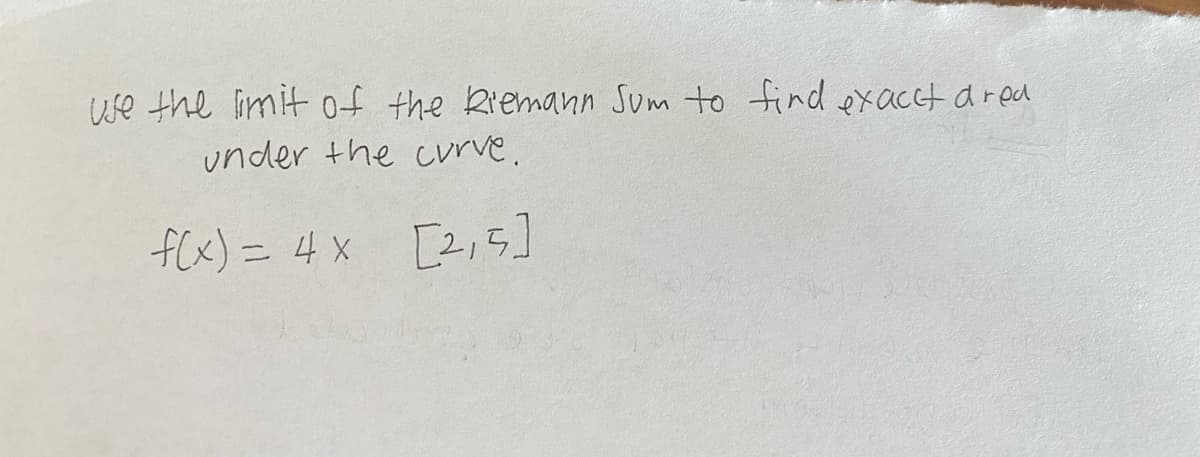 use the limit of the Riemann Sum to find exacct area
under the curve.
f(x) = 4x [2,5]